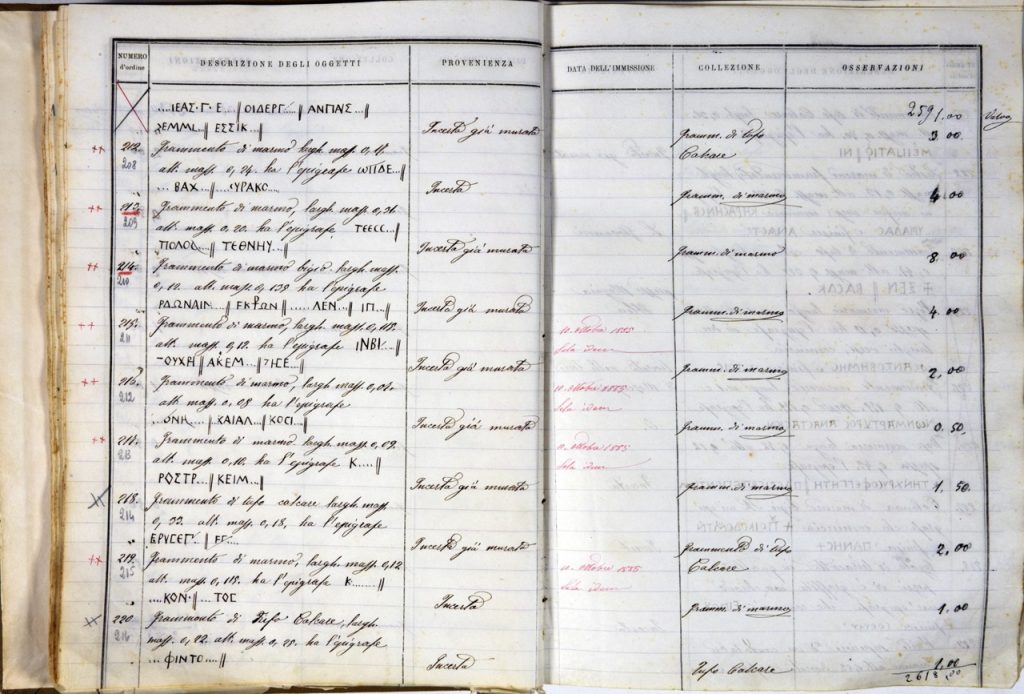 NUMERO d'ordine DESCRIZIONE DEGLI OGGETTI PROVENIENZA DATA DELL'IMMISSIONE COLLEZIONE OSSERVAZIONI
259/.00
....ΙΕΑΣ·Γ·Ε..‖ΟΙΔΕΡΓ...‖ΑΝΠΑΣ...‖
ΕΜΜΙ...‖ΕΣΣΙΚ...‖ Incerta già murata Framm. di tufo 3 00
212. Frammento di marmo largh. mass. 0, Calcare
208 alt. mass. 0, 24. ha l'epigrafe
... ΒΑΧ...‖...ΥΡΑΚΟ... Incerta Framm. di marmo 4.00
213. Frammento di marmo, largh. mass. 0, 36
209 alt. mass. 0, 20. ha l'epigrafe ΤΕΕΣΣ...
ΠΟΛΟΣ...‖ΤΕΘΝΗΥ...‖ Incerta già murata Framm. di marmo 8. 00
214. Frammento di marmo bigio largh. mass.
210 0, 12. alt. mass. 0, 139 ha l'epigrafe
ΡΔΩΝΑΙΝ...‖ΕΚΡΩΝ.....ΛΕΝ..‖ΙΠ...‖ Incerta già murata Framm. di marmo 4.00
215. Frammento di marmo, largh. mass. 0, 10 Ottobre 1885
211 alt. mass. 0, 12. ha l'epigrafe ΙΝΒΙ...‖ idem
ΟΥΧΡΙ‖ΑΚΕΜ...‖ Incerta già murata Framm. di marmo 2,00
Frammento di marmo, largh. mass. 0, 10 Ottobre 1885
212 alt. mass. 0, 08 ha l'epigrafe idem
...ΟΝΗ...‖ΚΑΙΑΛ...‖ΚΟΣΙ...‖ Incerta già murata Framm. di marmo 0.50.
Frammento di marmo largh. mass. 0, 09. 10 Ottobre 1885
213 alt. mass. 0, 10. ha l'epigrafe Κ..... idem
ΡΟΣΤΡ...‖ΚΕΙΜ...‖ Incerta già murata Framm. di marmo 1. 50.
218. Frammento di tufo calcare largh. mass.
214 0, 33. alt. mass. 0, 18, ha l'epigrafe
‖ΕΡ... Incerta già murata Frammento di tufo 2,00
219. Frammento di marmo, largh. mass. 0, 12 10 Ottobre 1885 Calcare
215 alt. mass. 0, 115. ha l'epigrafe Κ........ idem
...ΚΟΝ...‖...ΤΟΣ Incerta Framm. di marmo 1.00
220. Frammento di Tufo Calcare, largh.
216 mass. 0, 22. alt. mass. 0, 25. ha l'epigrafe
...ΦΙΝΤΟ....‖ Incerta Tufo Calcare 1,00